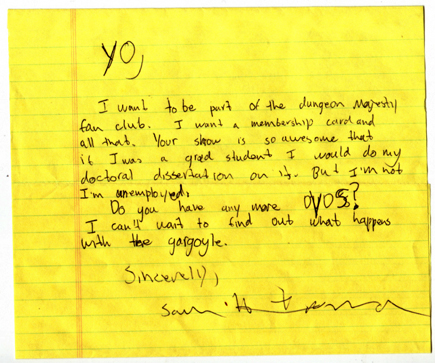 YO,
I want to be part of the dungeon Majesty
fan club. I want a membership card and
all that. Your show is so awesome that
if I was a grad student I would do my
doctoral dissertation on it. But I'm not
I'm unemployed.
Do you have any more DVDs?
I can't wait to find out what happens
with the gargoyle.
Sincerely,